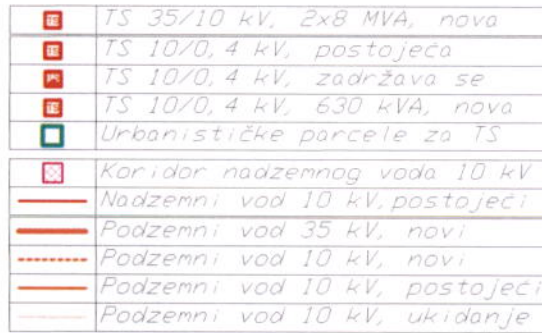 TS 35/10 kV, 2x8 MVA, nova
TS 10/0,4 kV, postojeća
TS 10/0,4 kV, zadržava se
TS 10/0,4 kV, 630 kVA, nova
Urbanističke parcele za TS
Koridor nadzemnog voda 10 kV
Nadzemni vod 10 kV,postojeći
Podzemni vod 35 kV, novi
Podzemni vod 10 kV, novi
Podzemni vod 10 kV, postojeći
Podzemni vod 10 kV, ukidanje